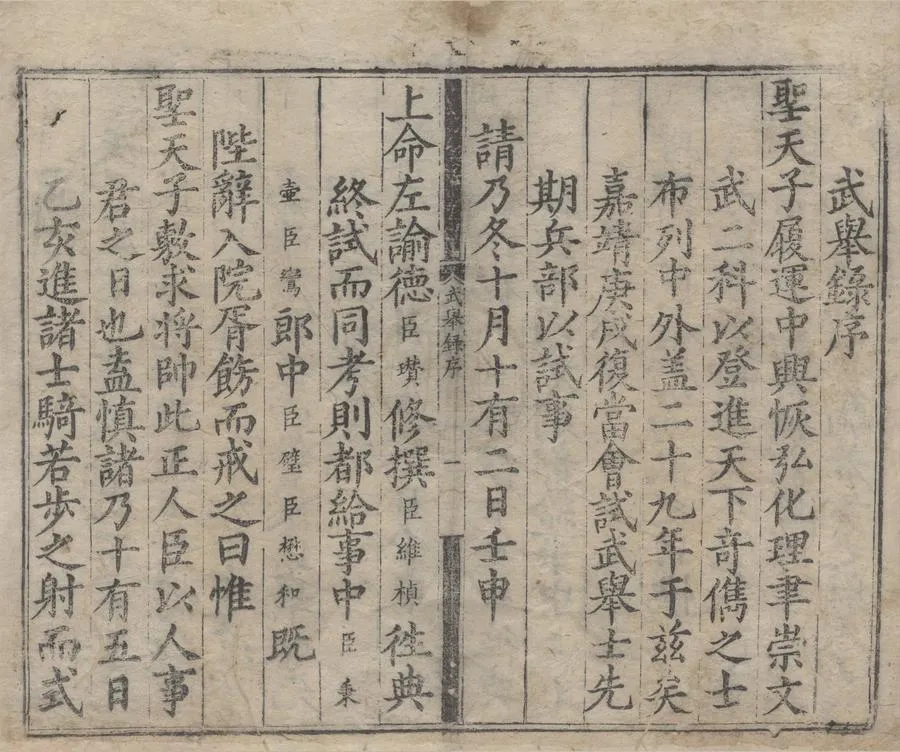 武舉錄序
聖天子履運中興恢弘化理聿崇文
武二科以登進天下奇儁之士
布列中外盖二十九年于兹矣
嘉靖庚戌復當會試武舉士先
期兵部以試事
請乃冬十月十有二日壬申
武舉錄序 一
上命左諭德臣瓚修撰臣維楨徃典
終試而同考則都給事中臣秉
壷臣鸞郎中臣璧臣懋和既
陛辭入院胥飭而戒之曰惟
聖天子敷求将帥此正人臣以人事
君之日也盍慎諸乃十有五日
乙亥進諸士騎若步之射而式